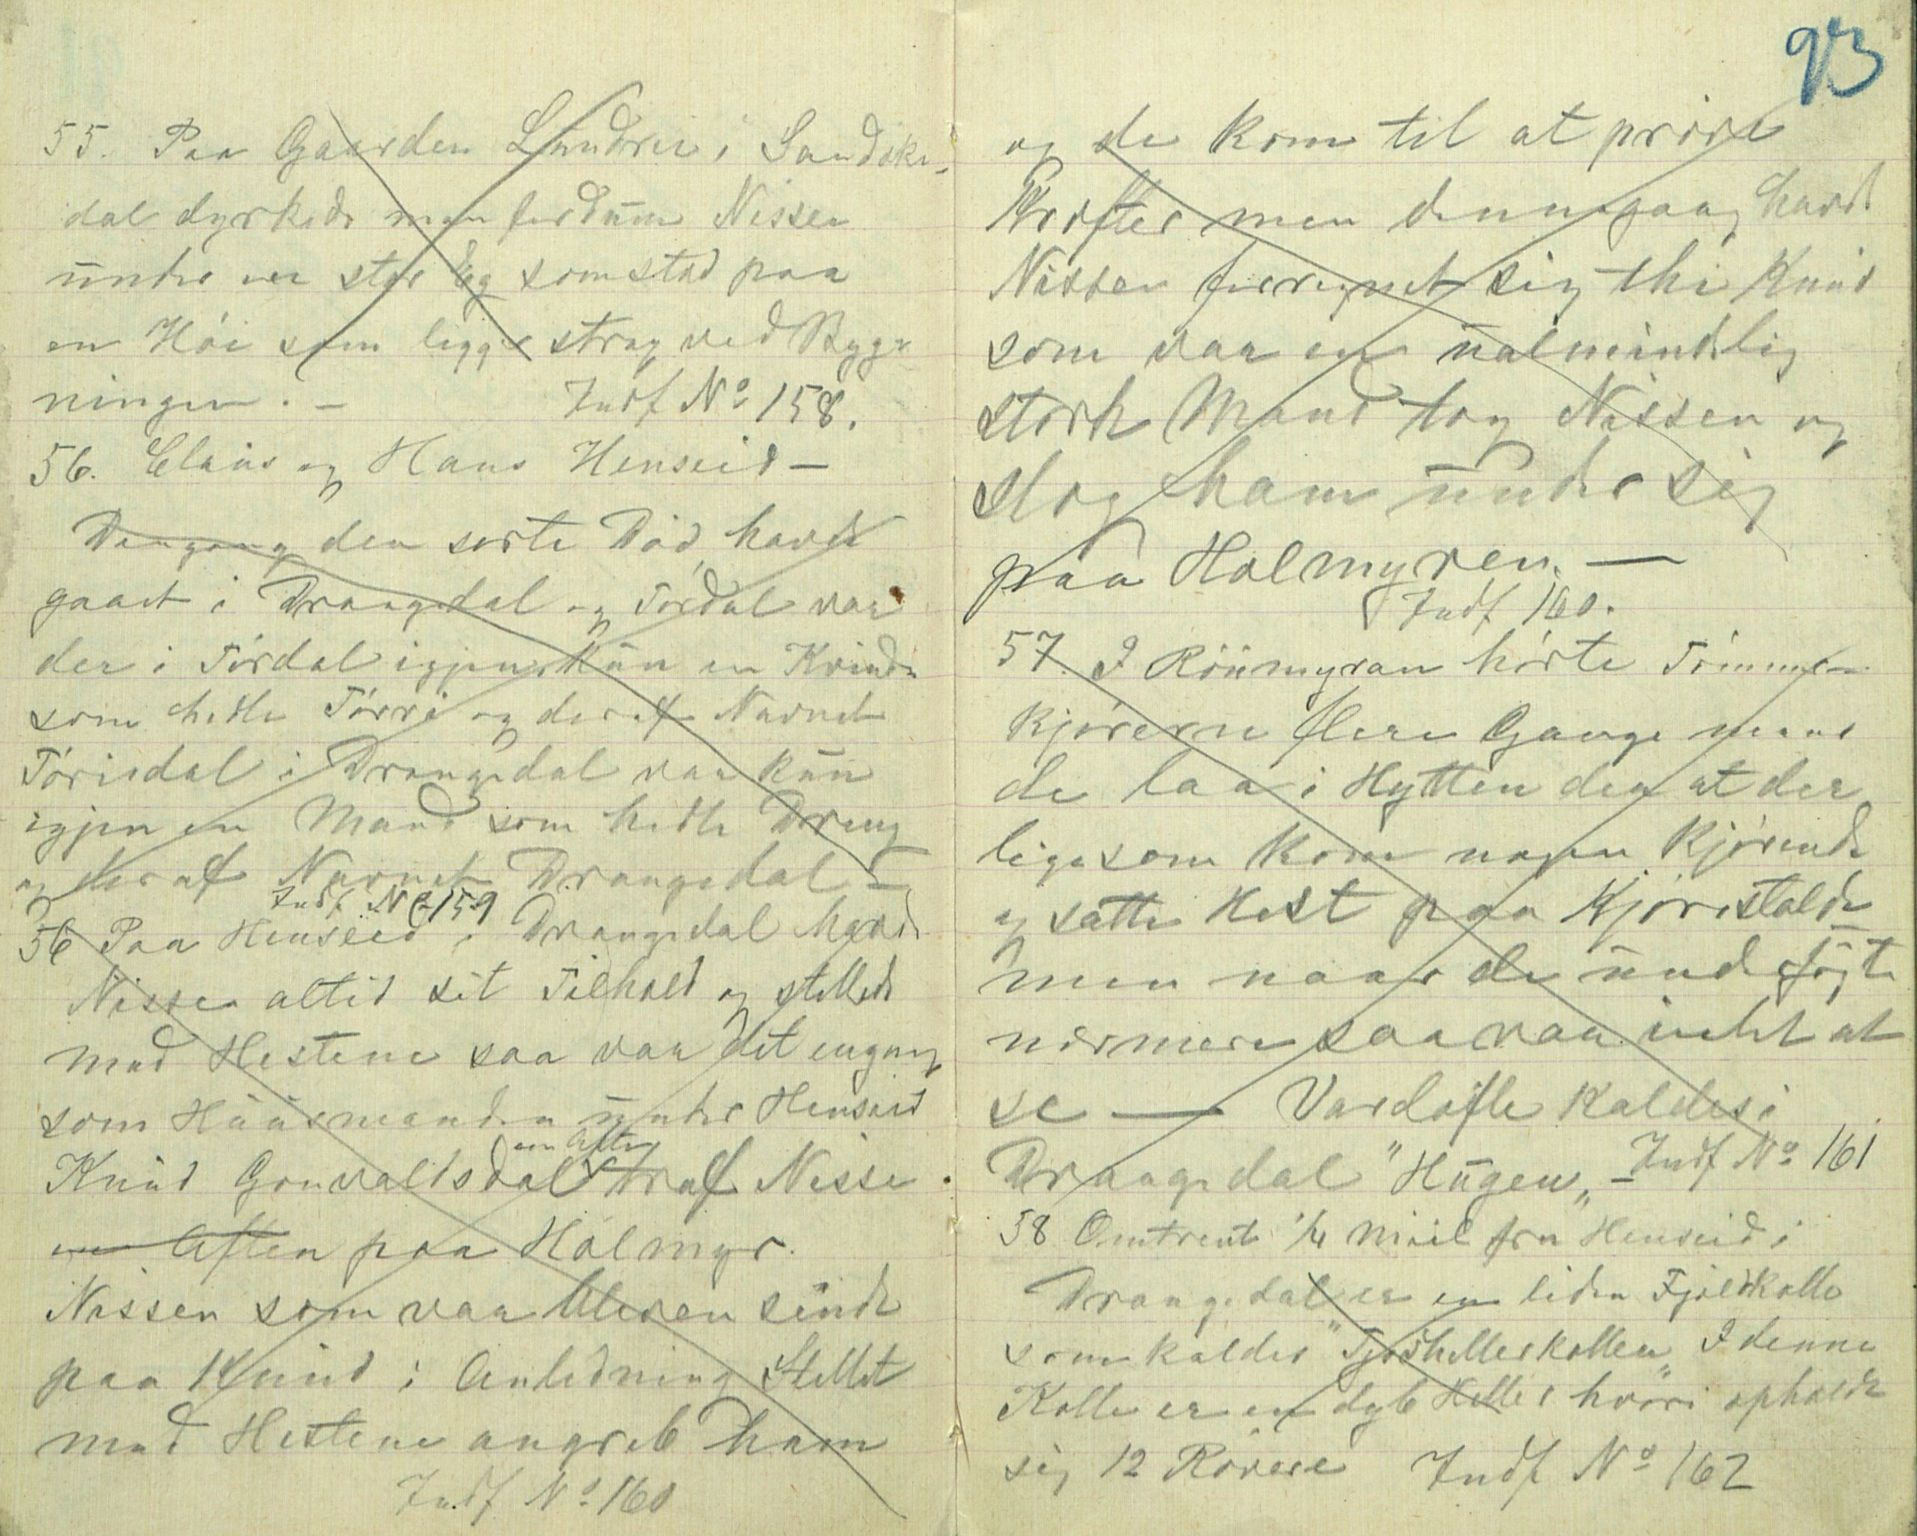 55. Paa Gaarden Lundrei i Sandøke-
dal dyrkede man fordum Nissen
under en stor Eg som stod paa
en Høi som ligge strax ved Byg-
ningen. - Indf No 158.
56. Claus og Hans Henseid -
Dengang den sorte Død havde
gaaet i Drangedal og Tørdal var
der i Tørdal igjen kun en Kvinde
som hedte Tørri og deraf Navnet
Tørisdal i Drangedal var kun
igjen en Mand som hedte Dreng
og deraf Navnet Drangedal -
Indf No 159
56 Paa Henseid i Drangedal havde
Nissen altid sit Tilhold og stellede
med Hestene saa var det engang
som Huusmanden under Henseid
en Aften
Knud Gonvaldsdal traf Nisse
en Aften paa Holmyr.
Nissen som var bleven sindt
paa Knud i Anledning Stellet
med Hestene angreb ham
Indf No 160
93
og de kom til at prøve
Kræfter men dennegang havde
Nissen forregnet sig thi Knud
som var en ualmindelig
stærk Mand tog Nissen og
slog ham under sig
paa Holmyren. -
Indf 160.
57. I Rönmyran hørte Tømmer-
kjørerne flere Gange mens
de laa i Hytten der at der
ligesom kom nogen kjørende
og satte Hest paa Kjørestalde
men naar de undersøgte
nærmere saa var intet at
se - Vardøfle kaldes i
Drangedal "Hugen" - Indf No 161
58 Omtrent 1/4 Miil fra Henseid i
Drangedal er en liden Fjeldkolle
som kaldes "Tjovhellerkollen" I denne
Kolle er en dyb Heller hvori opholdt
sig 12 Røvere Indf No 162